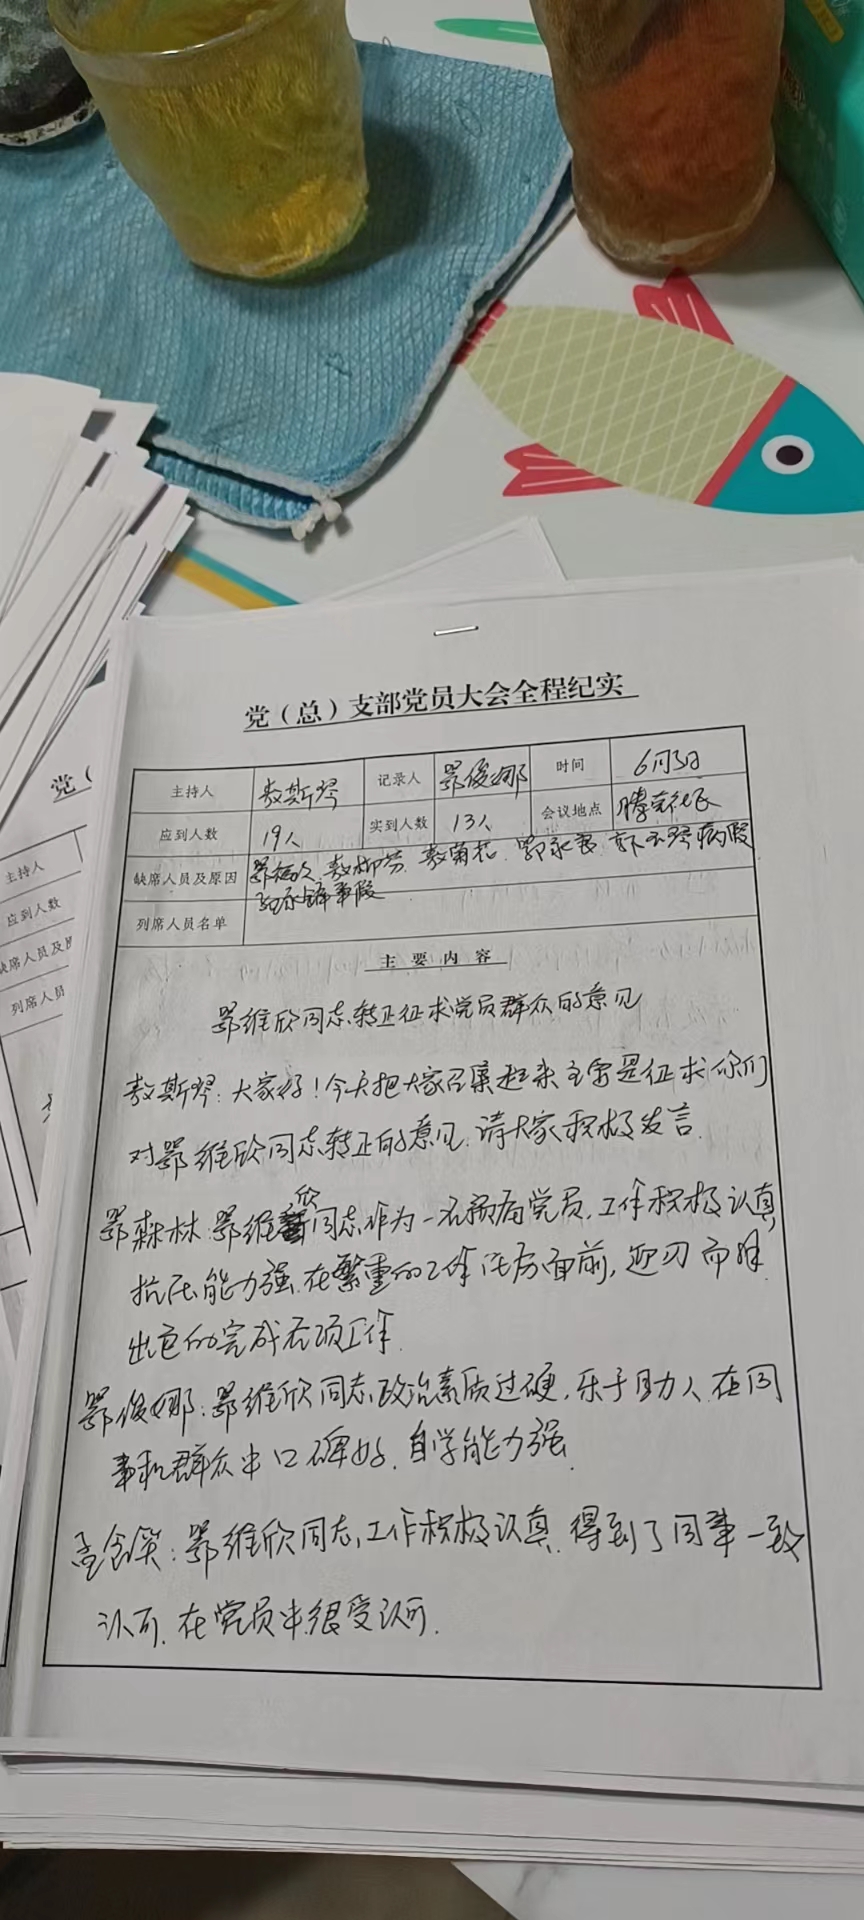 党（总）支部党员大会全程纪实
主持人 敖斯琴 记录人 鄂俊娜 时间 6月3日
应到人数 19人 实到人数 13人 会议地点 腾克社区
缺席人员及原因 敖柳芳 敖菊花 病假
事假
列席人员名单
主要内容
鄂维欣同志转正征求党员群众的意见
敖斯琴：大家好！今天把大家召集起来主要是征求你们
对鄂维欣同志转正的意见，请大家积极发言。
鄂森林：鄂维欣同志作为一名预备党员，工作积极认真，
抗压能力强，在繁重的工作压力面前，迎刃而解
出色的完成各项工作。
鄂俊娜：鄂维欣同志，政治素质过硬，乐于助人，在同
事和群众中口碑好，自学能力强。
孟含英：鄂维欣同志，工作积极认真，得到了同事一致
认可，在党员中很受认可。
党（
主持人
应到人数
缺席人员及原
列席人员